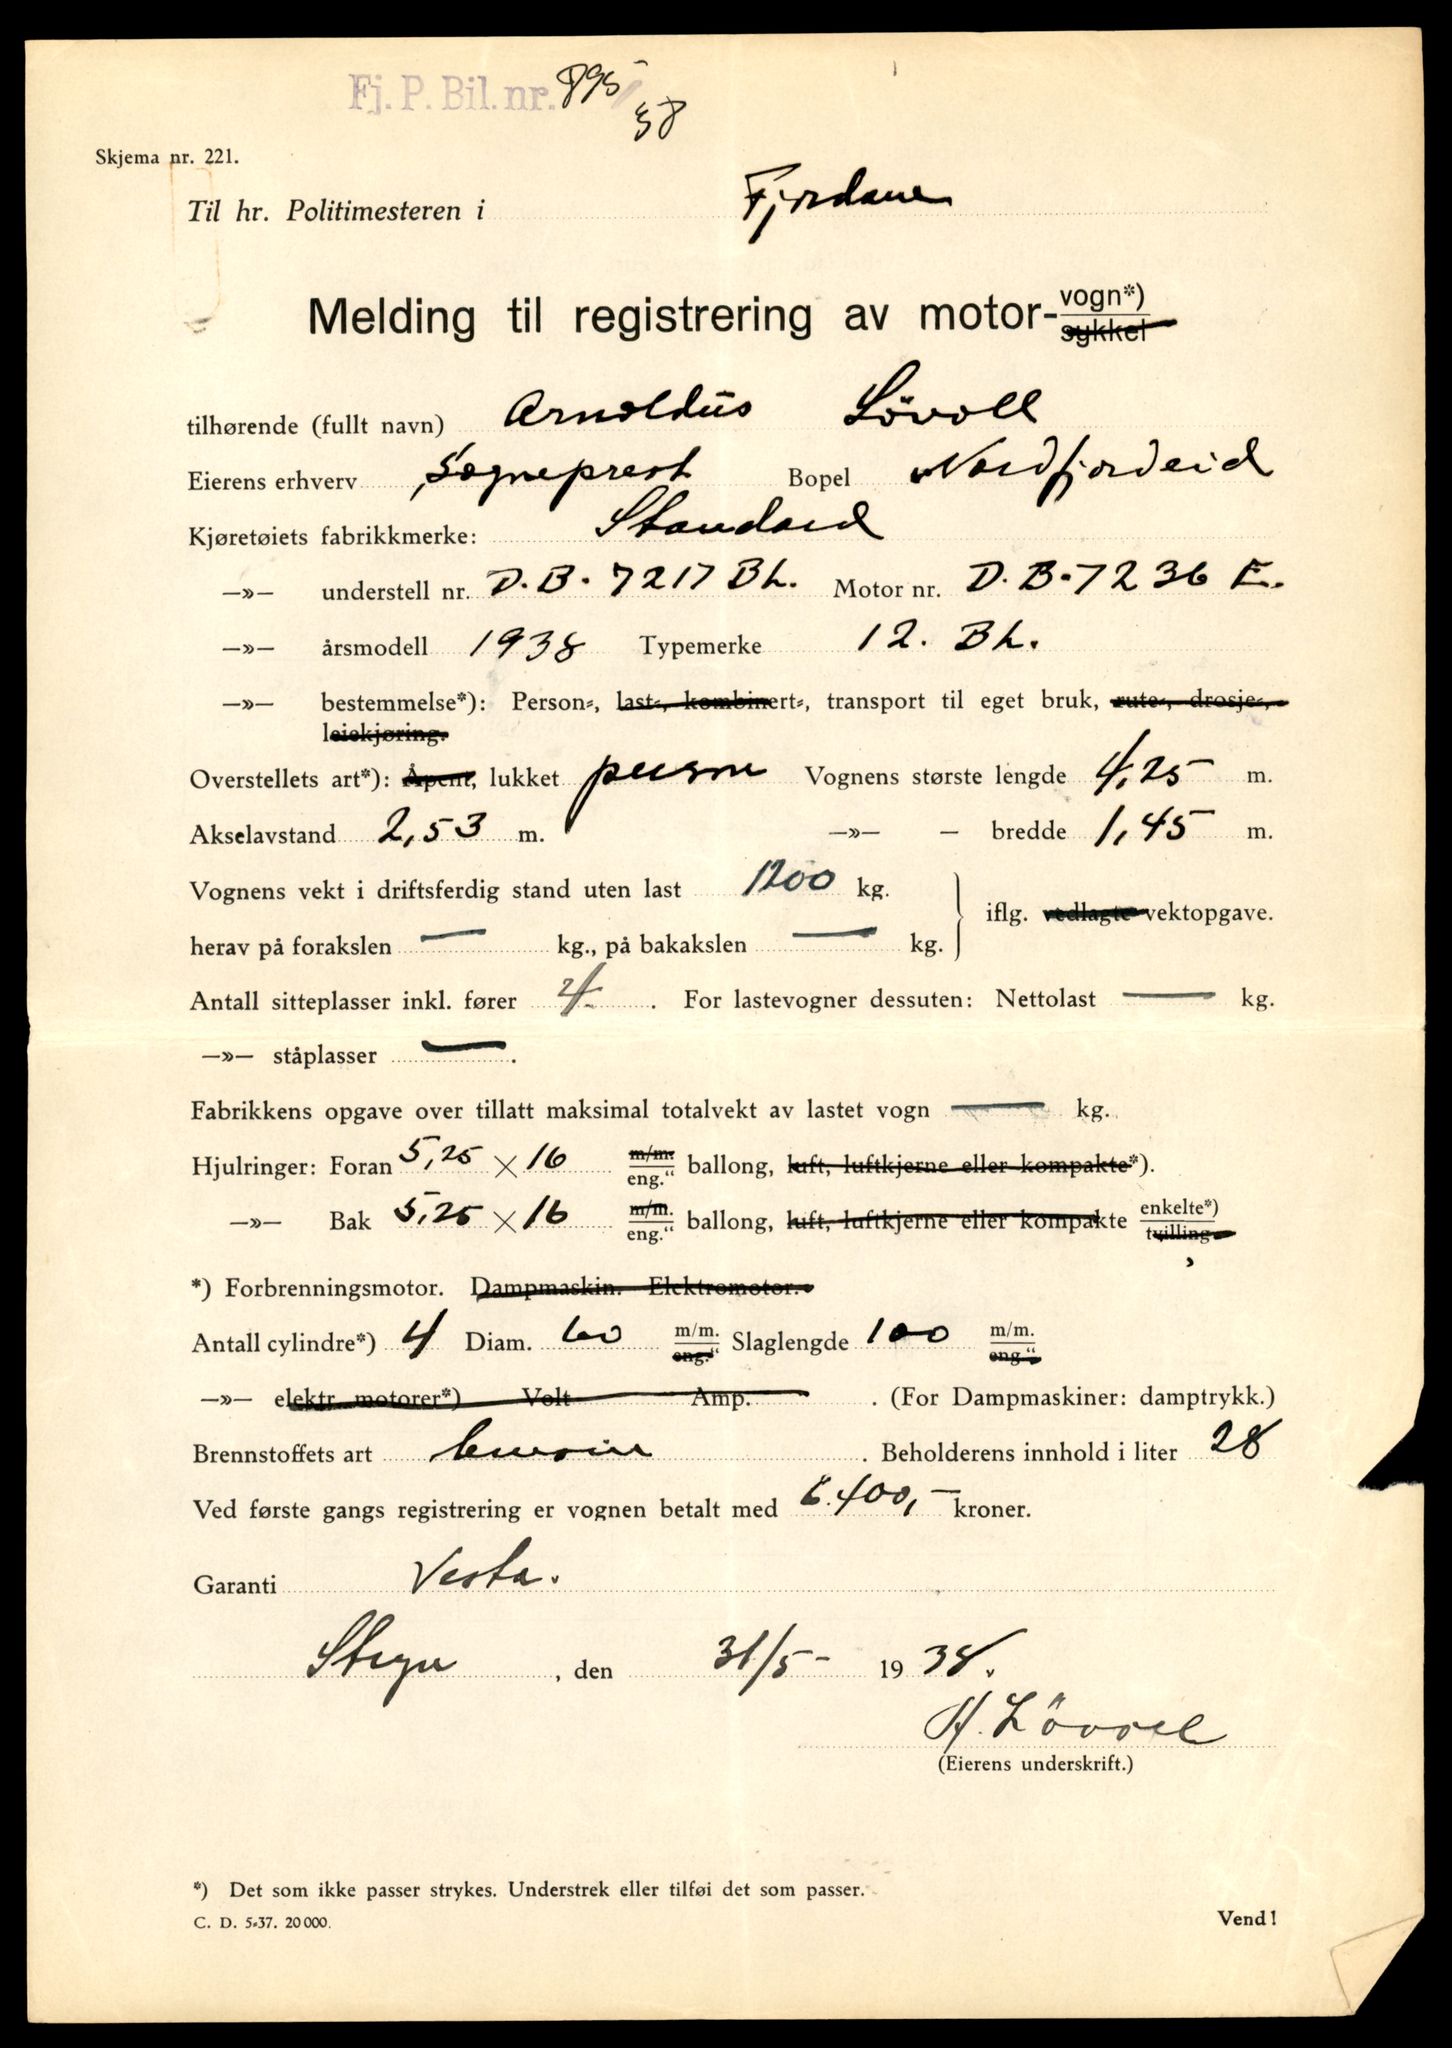 Fj. P. Bil. nr. 895/
38
Skjema nr. 221.
Til hr. Politimesteren i Fjordane
Melding til registrering av motor-vogn*)
sykkel
tilhørende (fullt navn) Arnoldus Lövoll
Eierens erhverv Sogneprest Bopel Nordfjordeid
Kjøretøiets fabrikkmerke: Standard
—»— understell nr. D.B. 7217 BL. Motor nr. D.B. 7236 E.
—»— årsmodell 1938 Typemerke 12. BL.
—»— bestemmelse*): Person-, last-, kombinert-, transport til eget bruk, rute-, drosje-,
leiekjøring.
Overstellets art*): Åpent, lukket person Vognens største lengde 4,25 m.
Akselavstand 2,53 m. —»— — bredde 1,45 m.
Vognens vekt i driftsferdig stand uten last 1200 kg.
iflg. vedlagte vektopgave.
herav på forakslen — kg., på bakakslen — kg.
Antall sitteplasser inkl. fører 4. For lastevogner dessuten: Nettolast — kg.
—»— ståplasser — .
Fabrikkens opgave over tillatt maksimal totalvekt av lastet vogn — kg.
Hjulringer: Foran 5,25 × 16 m/m. eng.“ ballong, luft, luftkjerne eller kompakte*).
—»— Bak 5,25 × 16 m/m. eng.“ ballong, luft, luftkjerne eller kompakte enkelte*) tvilling
*) Forbrenningsmotor. Dampmaskin. Elektromotor.
Antall cylindre*) 4 Diam. 60 m/m. eng.“ Slaglengde 100 m/m. eng.“
—»— elektr. motorer*) Volt Amp. . (For Dampmaskiner: damptrykk.)
Brennstoffets art bensin . Beholderens innhold i liter 28
Ved første gangs registrering er vognen betalt med 6.400,— kroner.
Garanti Vesta.
Stryn , den 31/5- 1938.
A. Lövoll
(Eierens underskrift.)
*) Det som ikke passer strykes. Understrek eller tilføi det som passer.
C. D. 5-37. 20 000.
Vend!